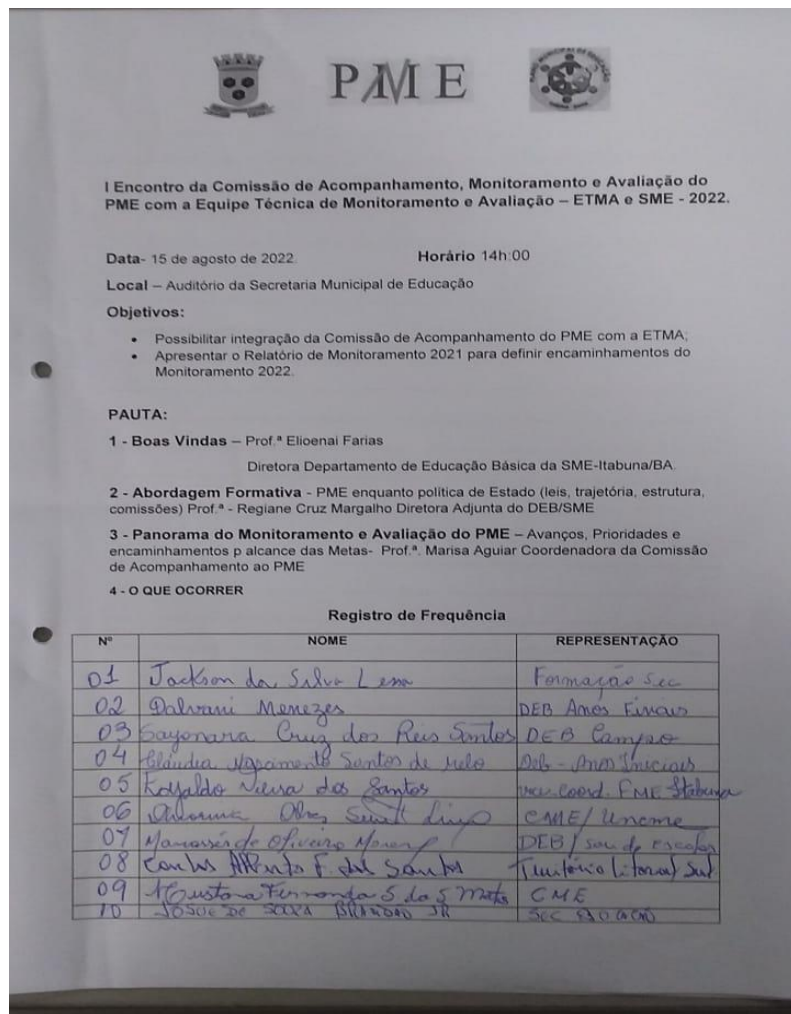 PME
I Encontro da Comissão de Acompanhamento, Monitoramento e Avaliação do
PME com a Equipe Técnica de Monitoramento e Avaliação – ETMA e SME - 2022.
Data- 15 de agosto de 2022. Horário 14h:00
Local – Auditório da Secretaria Municipal de Educação
Objetivos:
• Possibilitar integração da Comissão de Acompanhamento do PME com a ETMA;
• Apresentar o Relatório de Monitoramento 2021 para definir encaminhamentos do
Monitoramento 2022.
PAUTA:
1 - Boas Vindas – Prof.ª Elioenai Farias
Diretora Departamento de Educação Básica da SME-Itabuna/BA.
2 - Abordagem Formativa - PME enquanto política de Estado (leis, trajetória, estrutura,
comissões) Prof.ª - Regiane Cruz Margalho Diretora Adjunta do DEB/SME
3 - Panorama do Monitoramento e Avaliação do PME – Avanços, Prioridades e
encaminhamentos p alcance das Metas- Prof.ª. Marisa Aguiar Coordenadora da Comissão
de Acompanhamento ao PME
4 - O QUE OCORRER
Registro de Frequência
Nº NOME REPRESENTAÇÃO
01 Jackson da Silva Formação Sec
02 Dalvani Menezes DEB Anos Finais
03 Sayonara Cruz dos Reis Santos DEB Campo
04 Cláudia Santos de Melo Deb - Anos Iniciais
05 dos Santos vice-coord. FME Itabuna
06 CME/Uncme
07 de Oliveira DEB/
08 Carlos Alberto F. dos Santos Território Litoral Sul
09 Fernanda S. da S. CME
10 JOSUÉ DE SOUZA BRANDÃO JR SEC EDUCAÇÃO